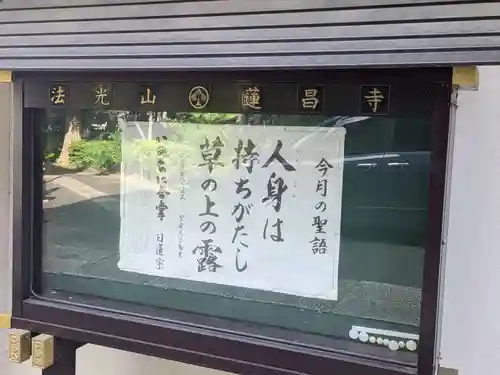 法光山 蓮昌寺
今月の聖語
人身は
持ちがたし
草の上の露
日蓮宗